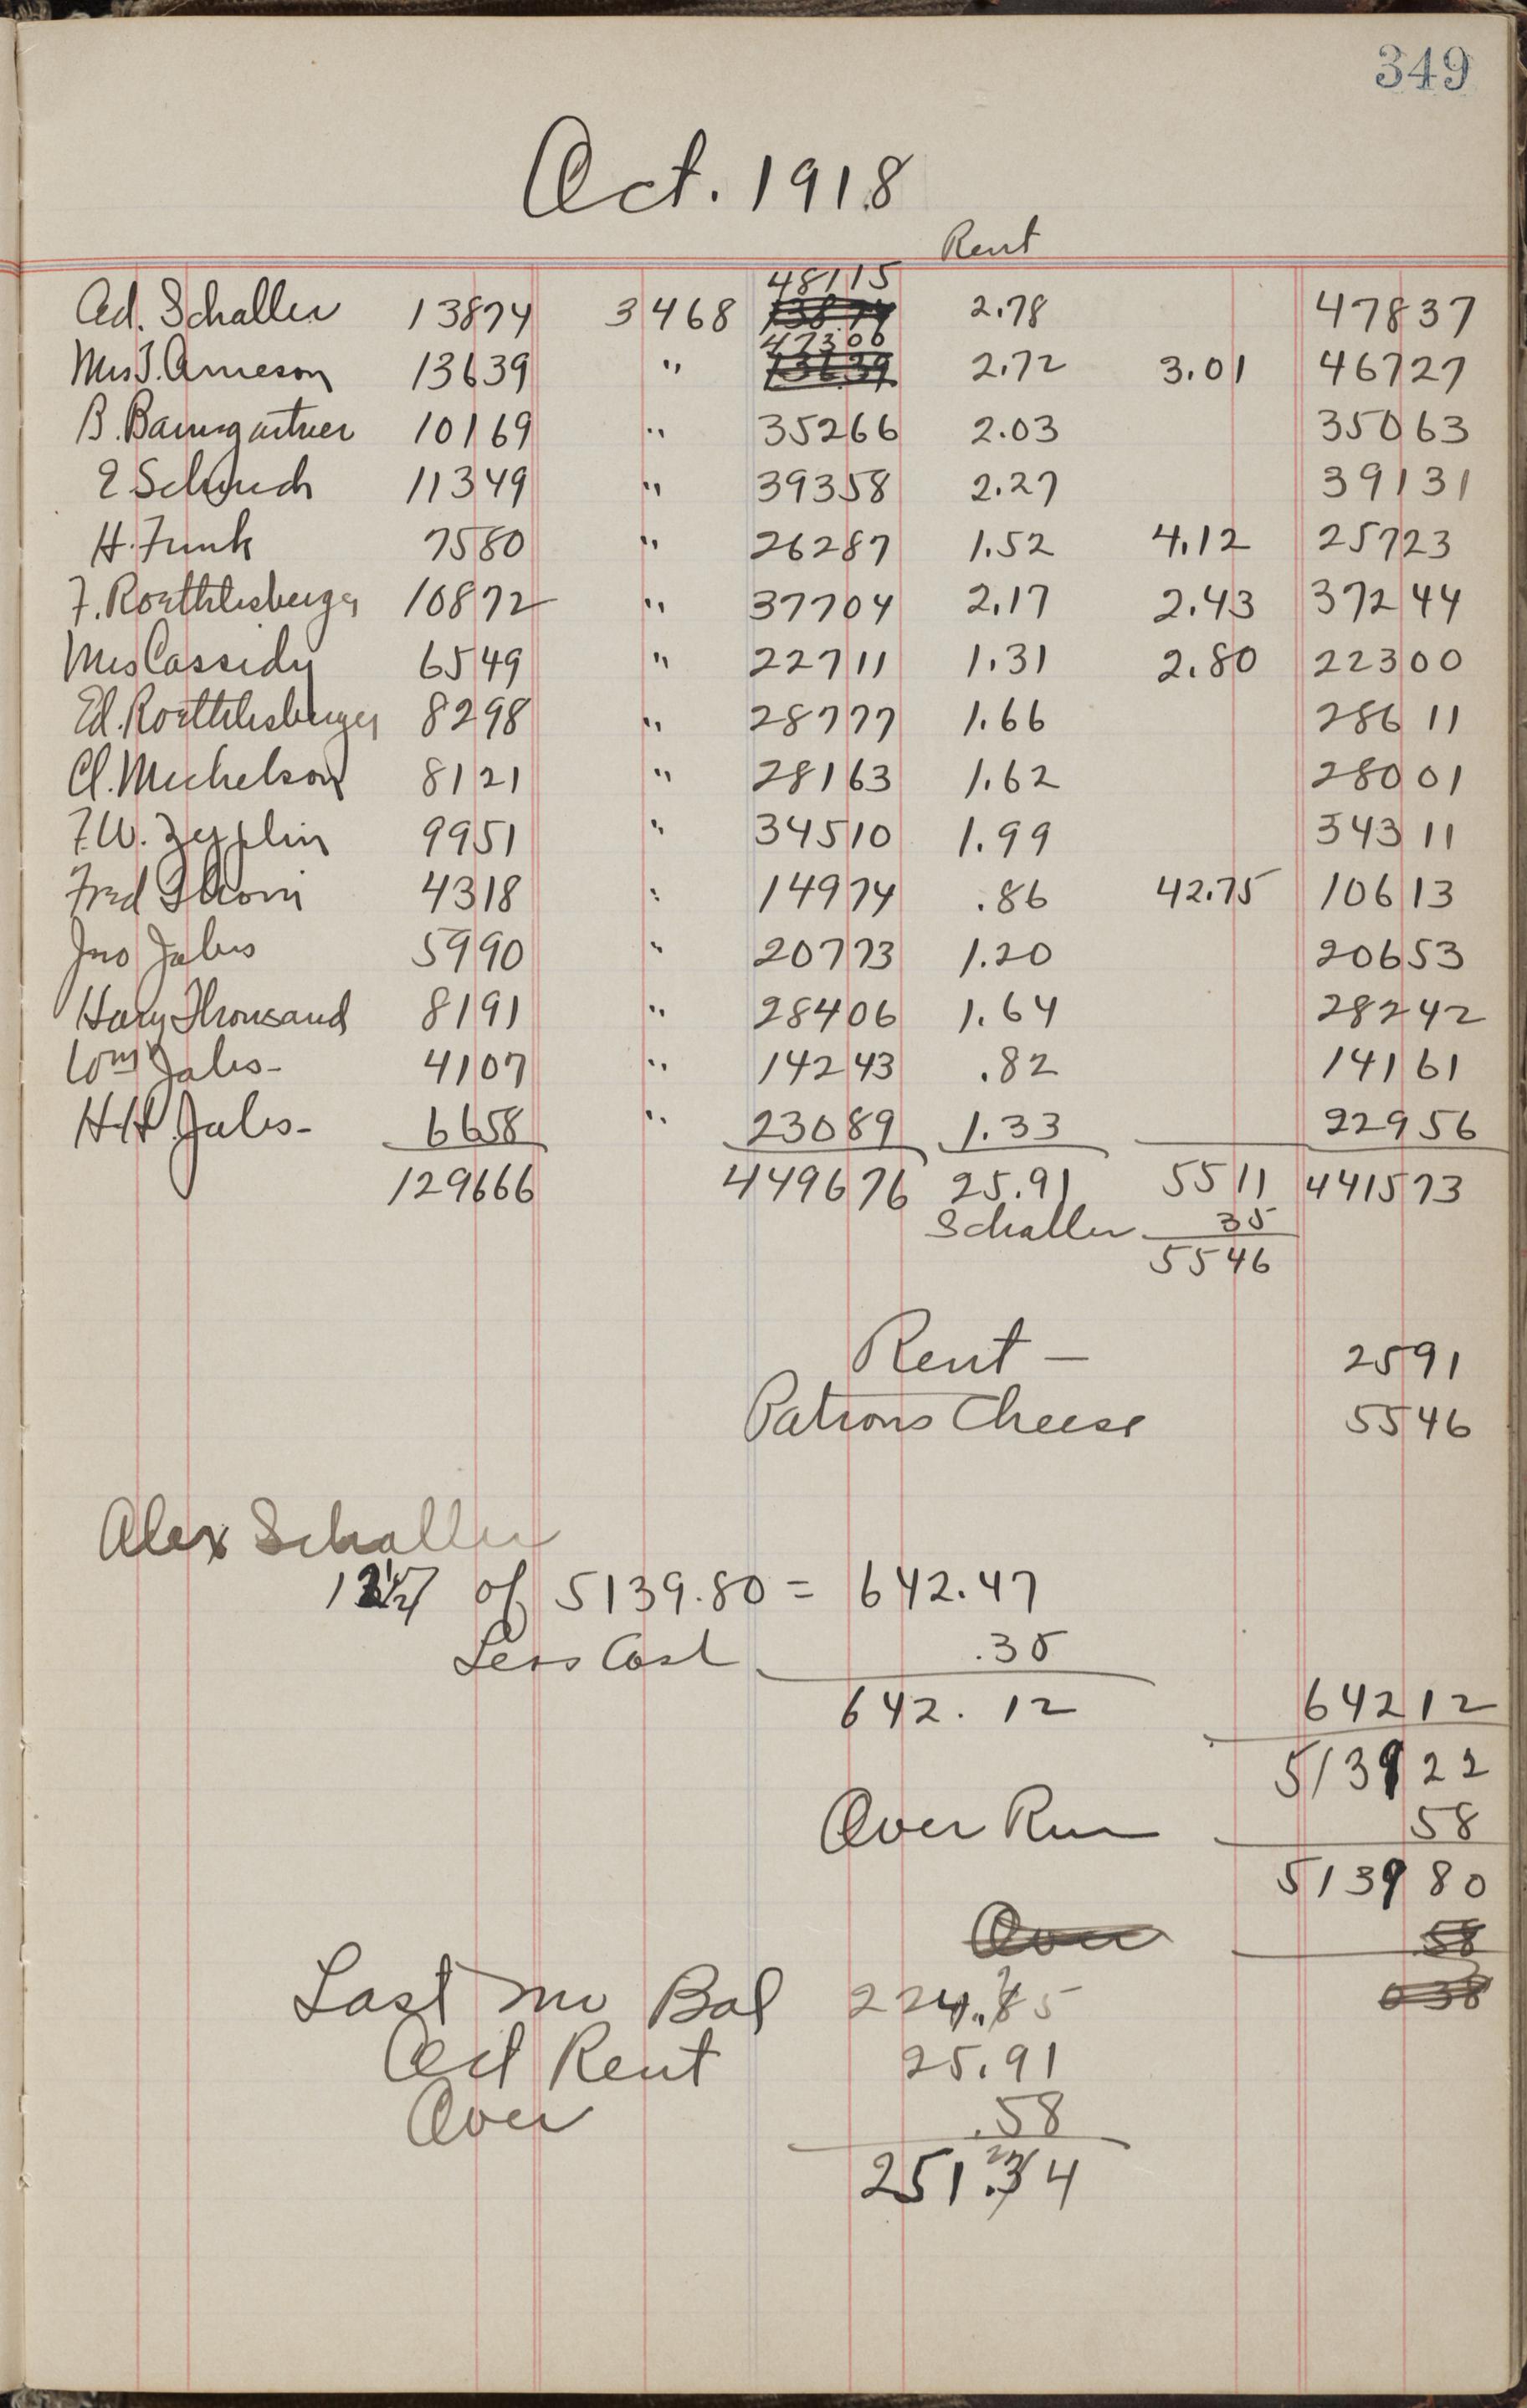 349
Oct. 1918
Rent
48115
Ad. Schaller 13874 3468 13874 2.78 47837
47300
Mrs J. Arneson 13639 " 13639 2.72 3.01 46727
B. Baumgartner 10169 " 35266 2.03 35063
E Schuch 11349 " 39358 2.27 39131
H. Funk 7580 " 26287 1.52 4.12 25723
F. Roethlisberger 10872 " 37704 2.17 2.43 37244
Mrs Cassidy 6549 " 22711 1.31 2.80 22300
Ed. Roethlisberger 8298 " 28777 1.66 28611
Cl. Michelson 8121 " 28163 1.62 28001
F.W. Zepplin 9951 " 34510 1.99 34311
Fred 4318 " 14974 .86 42.75 10613
Jno Jabs 5990 " 20773 1.20 20653
Harry Thousand 8191 " 28406 1.64 28242
Wm Jabs- 4107 " 14243 .82 14161
H.H. Jabs- 6658 " 23089 1.33 22956
129666 449676 25.91 5511 441573
Schaller 35
5546
Rent - 2591
Patrons Cheese 5546
Alex Schaller
12½ of 5139.80 = 642.47
Less Cash .35
642.12 64212
513922
Over Run 58
513980
Over 58
038
Last mo Bal 224.85
Oct Rent 25.91
Over .58
251.34